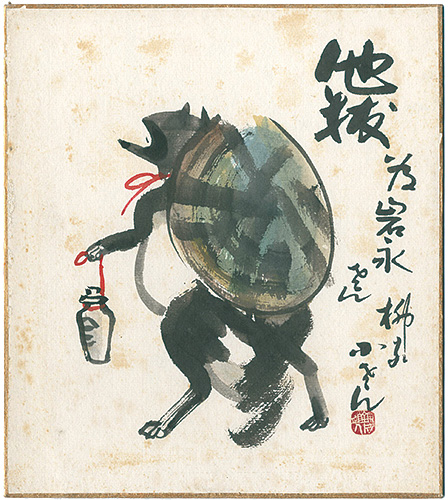 他抜
為岩永
さん
柳家
小さん